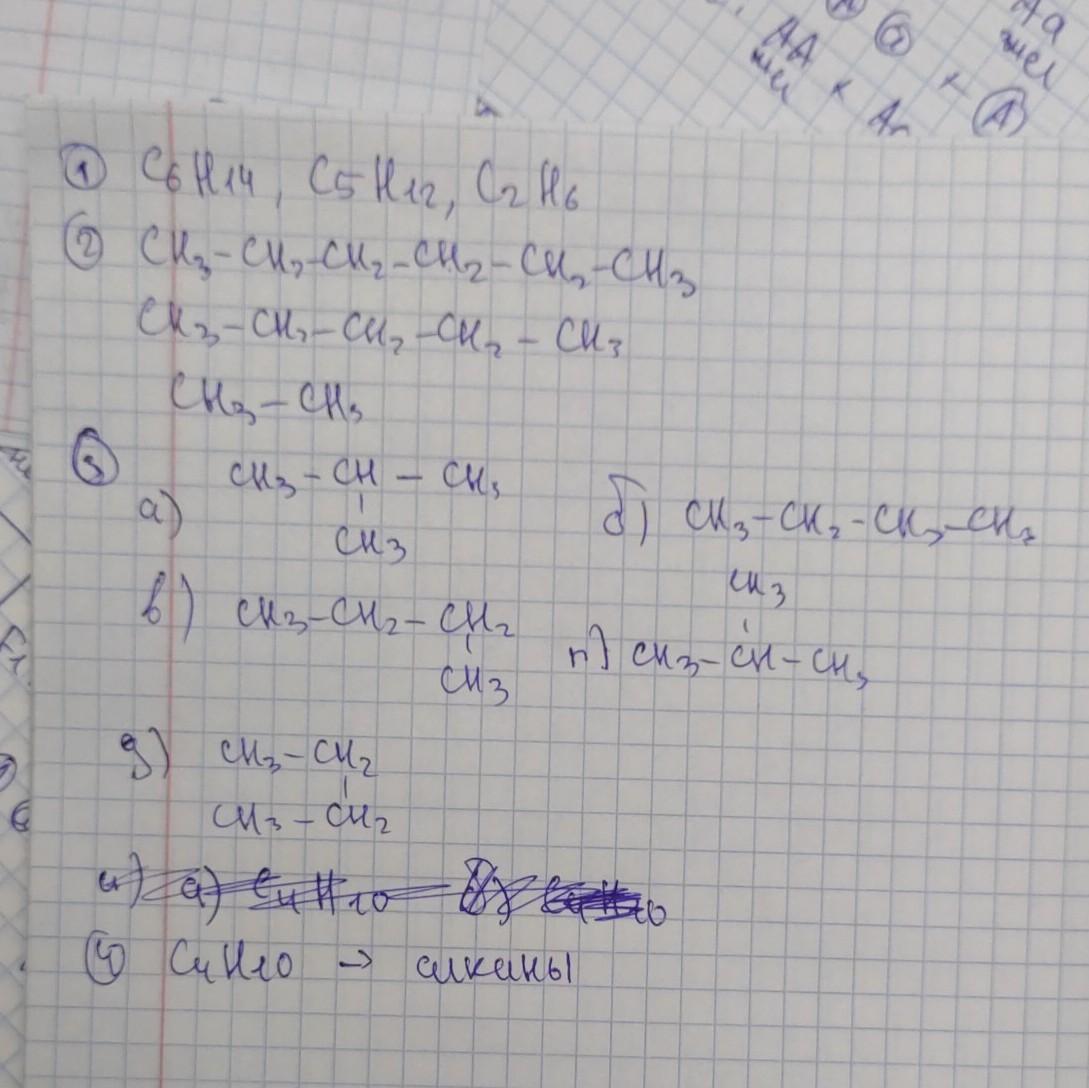 АА × Аа
жел
Г × А
Аа
жел
① C₆H₁₄, C₅H₁₂, C₂H₆
② CH₃-CH₂-CH₂-CH₂-CH₂-CH₃
CH₃-CH₂-CH₂-CH₂-CH₃
CH₃-CH₃
③
а) CH₃-CH-CH₃
|
CH₃
б) CH₃-CH₂-CH₂-CH₃
в) CH₃-CH₂-CH₂
|
CH₃
CH₃
|
г) CH₃-CH-CH₃
д) CH₃-CH₂
|
CH₃-CH₂
④ C₄H₁₀ → алканы